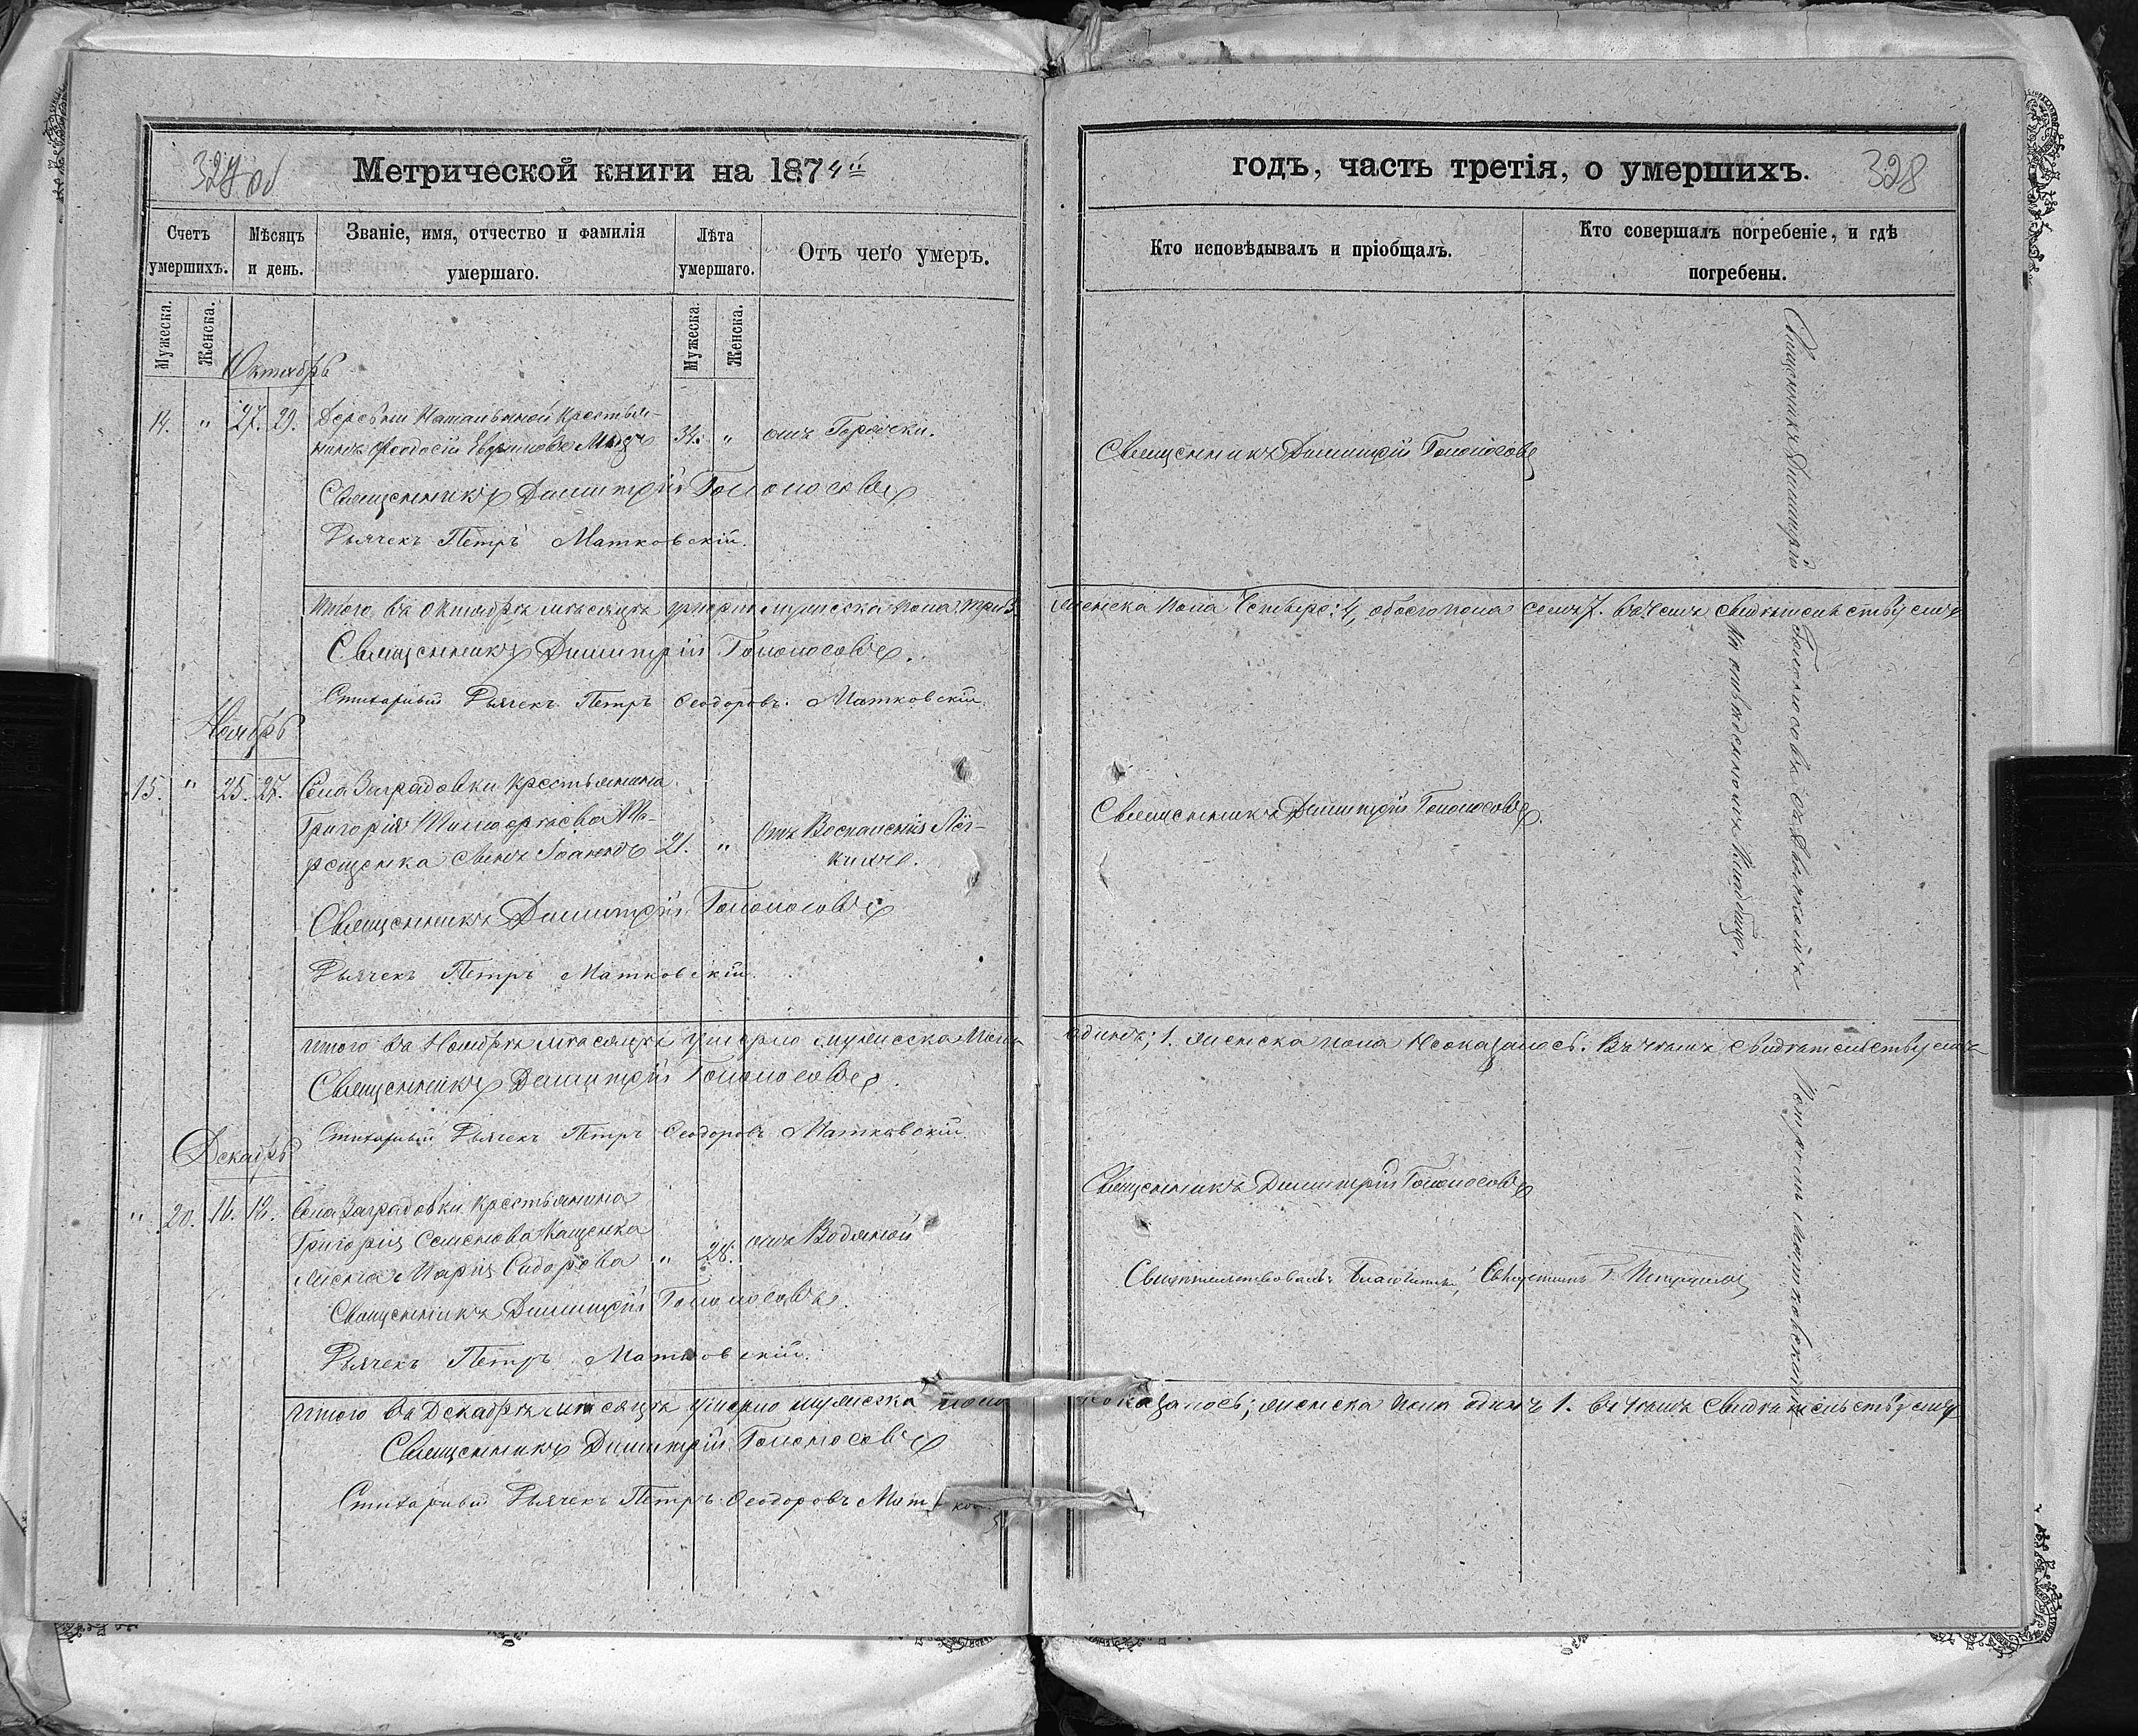 327 об
Метрической книги на 1874й
Счетъ умершихъ.
Мѣсяцъ и день.
Званіе, имя, отчество и фамилія умершаго.
Лѣта умершаго.
Отъ чего умеръ.
Мужеска.
Женска.
Мужеска.
Женска.
Октябрь
14. " 27. 29. Деревни Натальиной крестья-
нинъ Феодосій Евфимовъ 34. " отъ Горячки.
Священникъ Димитрій Голоносовъ
Дьячекъ Петръ Матковскій.
Итого въ Октябрѣ мѣсяцѣ умерло мужеска пола три 3.
Священникъ Димитрій Голоносовъ.
Стихарный Дьячекъ Петръ Ѳеодоровъ Матковскій.
Ноябрь
15. " 25. 27. Села Заградовки крестьянина
Григорія Тимофеева
рещенка сынъ Іоаннъ 21. " Отъ Воспаленія Лёг-
кихъ.
Священникъ Димитрій Голоносовъ
Дьячекъ Петръ Матковскій.
Итого въ Ноябрѣ мѣсяцѣ умерло мужеска пола
Священникъ Димитрій Голоносовъ.
Стихарный Дьячекъ Петръ Ѳеодоровъ Матковскій
Декабрь
" 20. 16. 18. Села Заградовки крестьянина
Григорія Семенова Кащенка
жена Марія Сидорова " 28. отъ Водяной
Священникъ Димитрій Голоносовъ.
Дьячекъ Петръ Матковскій.
Итого въ Декабрѣ мѣсяцѣ умерло мужеска пола
Священникъ Димитрій Голоносовъ
Стихарный Дьячекъ Петръ Ѳеодоровъ Матков
годъ, часть третія, о умершихъ.
328
Кто исповѣдывалъ и пріобщалъ.
Кто совершалъ погребеніе, и гдѣ погребены.
Священникъ Димитрій Голоносовъ
женска пола Четыре: 4, обоего пола семь 7. въ чемъ свидѣтельствуемъ
Священникъ Димитрій Голоносовъ.
одинъ; 1. женска пола Неоказалось. Въ чемъ свидѣтельствуемъ
Священникъ Димитрій Голоносовъ
Свидѣтельствовалъ
неоказалось; женска пола одинъ 1. въ чемъ свидѣтельствуемъ
Священникъ Димитрій Голоносовъ съ Дьячкомъ Петромъ Матковскимъ
на отведенномъ Кладбище.